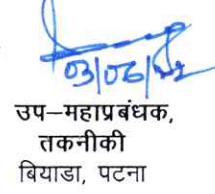 03/06/22
उप–महाप्रबंधक,
तकनीकी
बियाडा, पटना